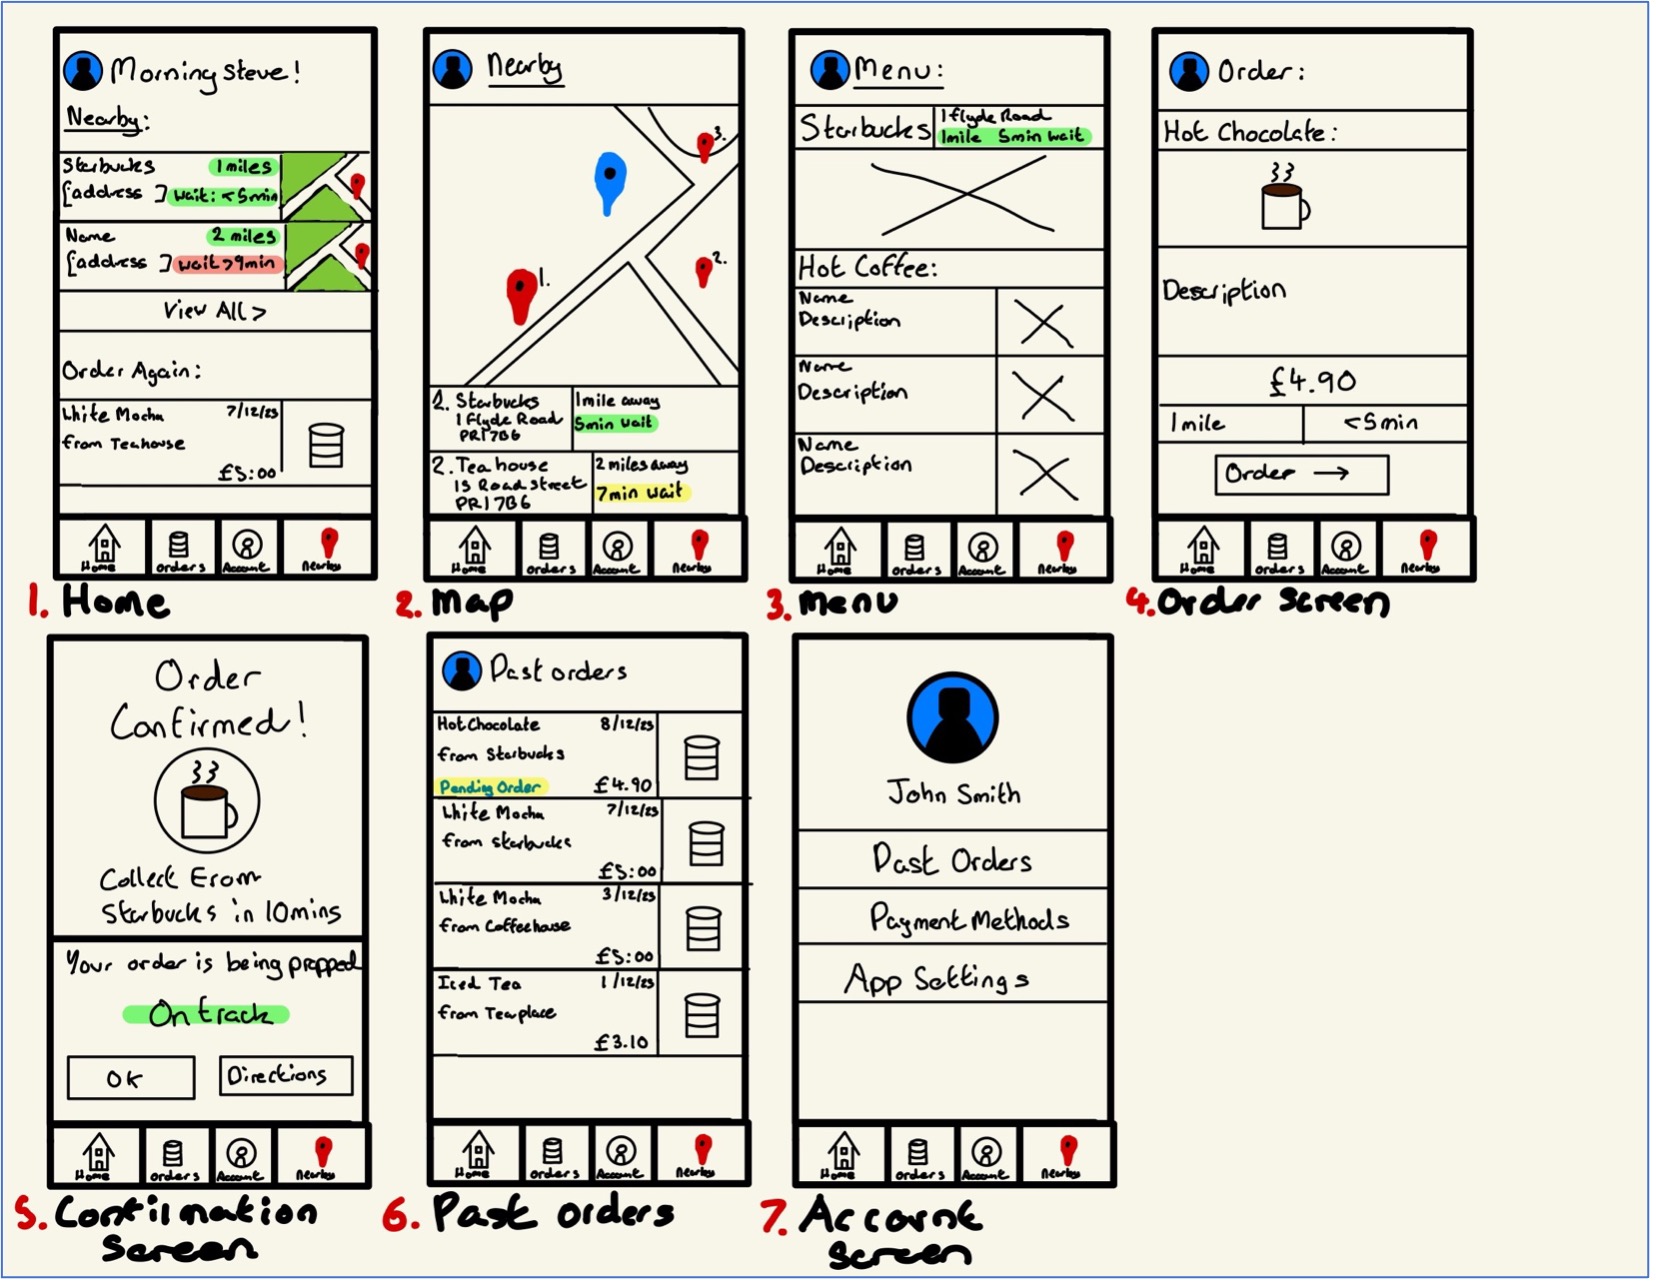 Morning Steve!
Nearby:
Starbucks 1 miles
[address ] wait: <5min
Name 2 miles
[address ] wait >9min
View All >
Order Again:
White Mocha 7/12/23
from Teahouse
£5:00
Home Orders Account Nearby
1. Home
Nearby
3.
1.
2.
1. Starbucks 1mile away
1 Flyde Road 5min wait
PR1 7BG
2. Tea house 2 miles away
15 Road Street 7min wait
PR1 7BG
Home Orders Account Nearby
2. Map
Menu:
Starbucks 1 flyde Road
1mile 5min wait
Hot Coffee:
Name
Description
Name
Description
Name
Description
Home Orders Account Nearby
3. Menu
Order:
Hot Chocolate:
Description
£4.90
1mile <5min
Order →
Home Orders Account Nearby
4. Order Screen
Order
Confirmed!
Collect From
Starbucks in 10mins
Your order is being prepped
On track
OK Directions
Home Orders Account Nearby
5. Confirmation
Screen
Past orders
Hot Chocolate 8/12/23
from Starbucks
Pending Order £4.90
White Mocha 7/12/23
from Starbucks
£5:00
White Mocha 3/12/23
from Coffeehouse
£5:00
Iced Tea 1/12/23
from Teaplace
£3.10
Home Orders Account Nearby
6. Past orders
John Smith
Past Orders
Payment Methods
App Settings
Home Orders Account Nearby
7. Account
Screen